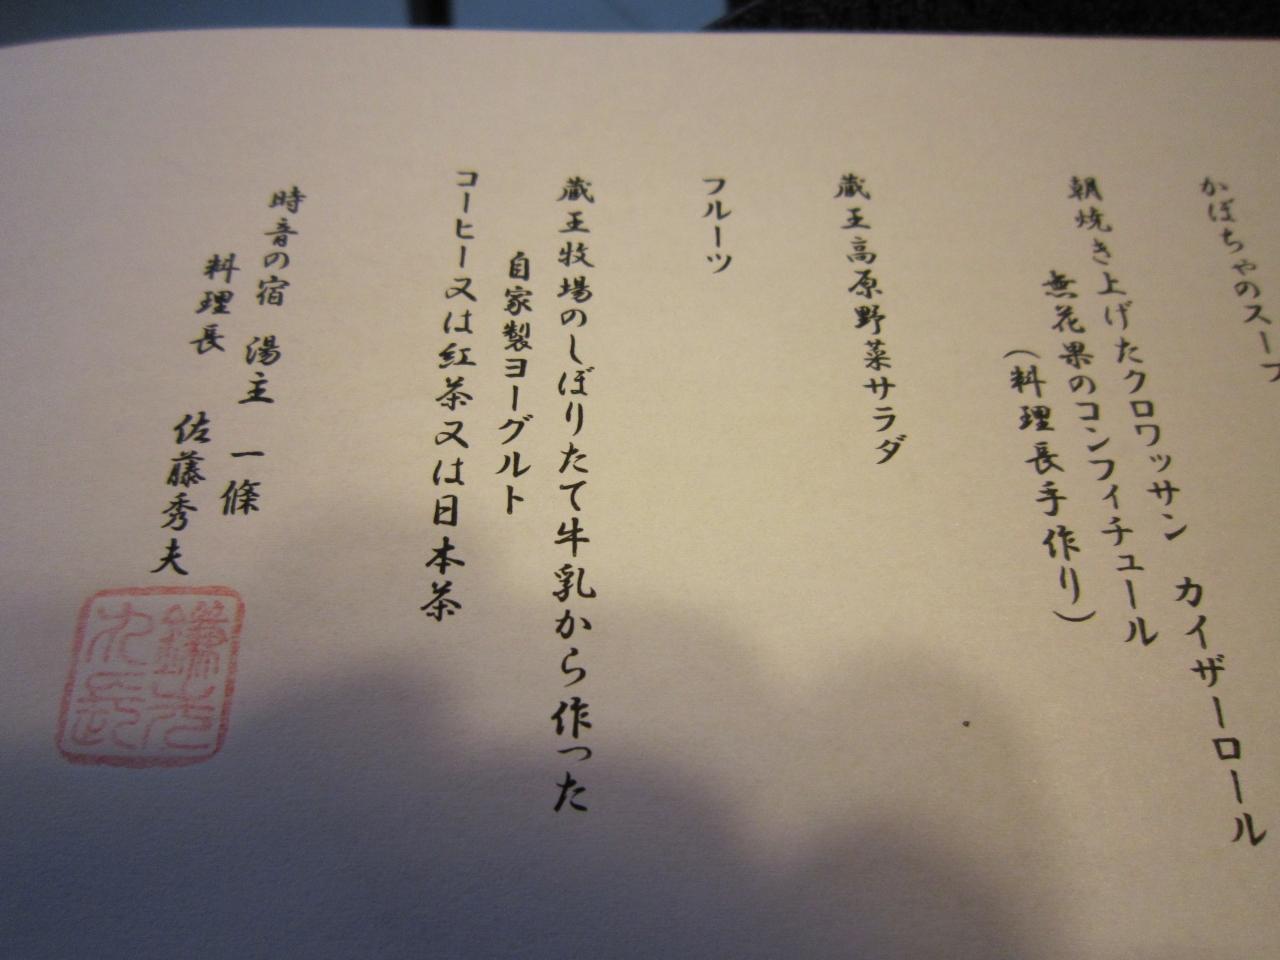 かぼちゃのスープ
朝焼き上げたクロワッサン カイザーロール
無花果のコンフィチュール
(料理長手作り)
蔵王高原野菜サラダ
フルーツ
蔵王牧場のしぼりたて牛乳から作った
自家製ヨーグルト
コーヒー又は紅茶又は日本茶
時音の宿 湯主 一條
料理長 佐藤秀夫